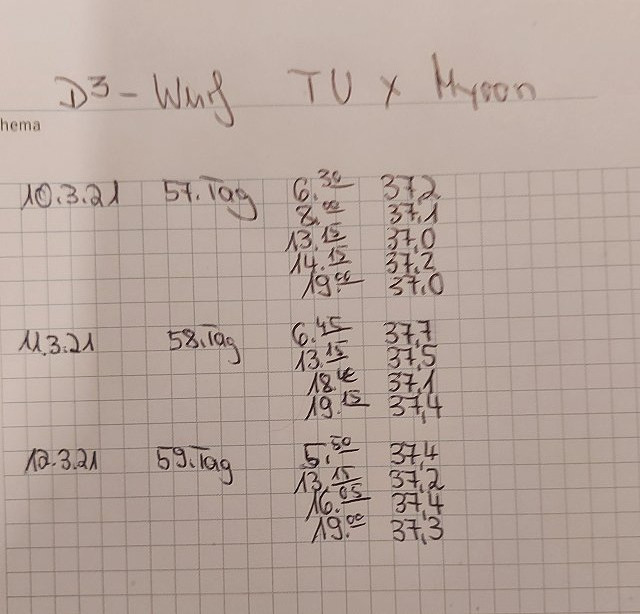 D³- Wurf TU x Hyson
hema
10.3.21 57.Tag 6.30 37,2
8.00 37,1
13.15 37,0
14.15 37,2
19.00 37,0
11.3.21 58.Tag 6.45 37,7
13.15 37,5
18. 37,1
19.15 37,4
12.3.21 59.Tag 5.30 37,4
13.15 37,2
16.05 37,4
19.00 37,3